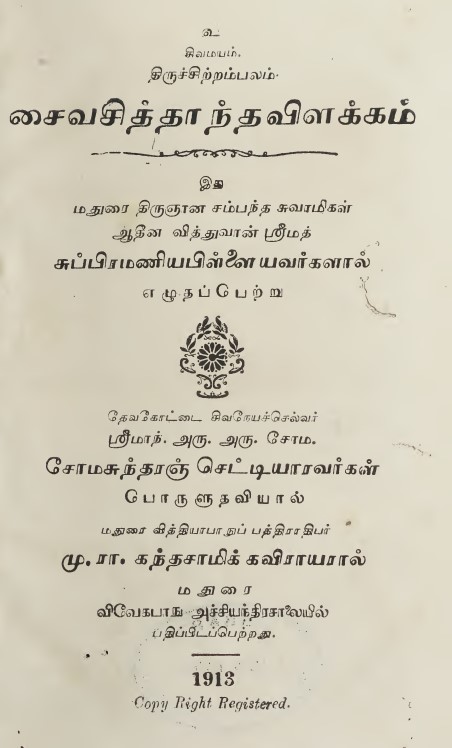 உ
சிவமயம்.
திருச்சிற்றம்பலம்.
சைவசித்தாந்தவிளக்கம்
இது
மதுரை திருஞான சம்பந்த சுவாமிகள்
ஆதீன வித்துவான் ஸ்ரீமத்
சுப்பிரமணியபிள்ளையவர்களால்
எழுதப்பெற்று
தேவகோட்டை சிவநேயச்செல்வர்
ஸ்ரீமாந். அரு. அரு. சோம.
சோமசுந்தரஞ் செட்டியாரவர்கள்
பொருளுதவியால்
மதுரை வித்தியாபாநுப் பத்திராதிபர்
மு. ரா. கந்தசாமிக் கவிராயரால்
மதுரை
விவேகபாநு அச்சியந்திரசாலையில்
பதிப்பிடப்பெற்றது.
1913
Copy Right Registered.